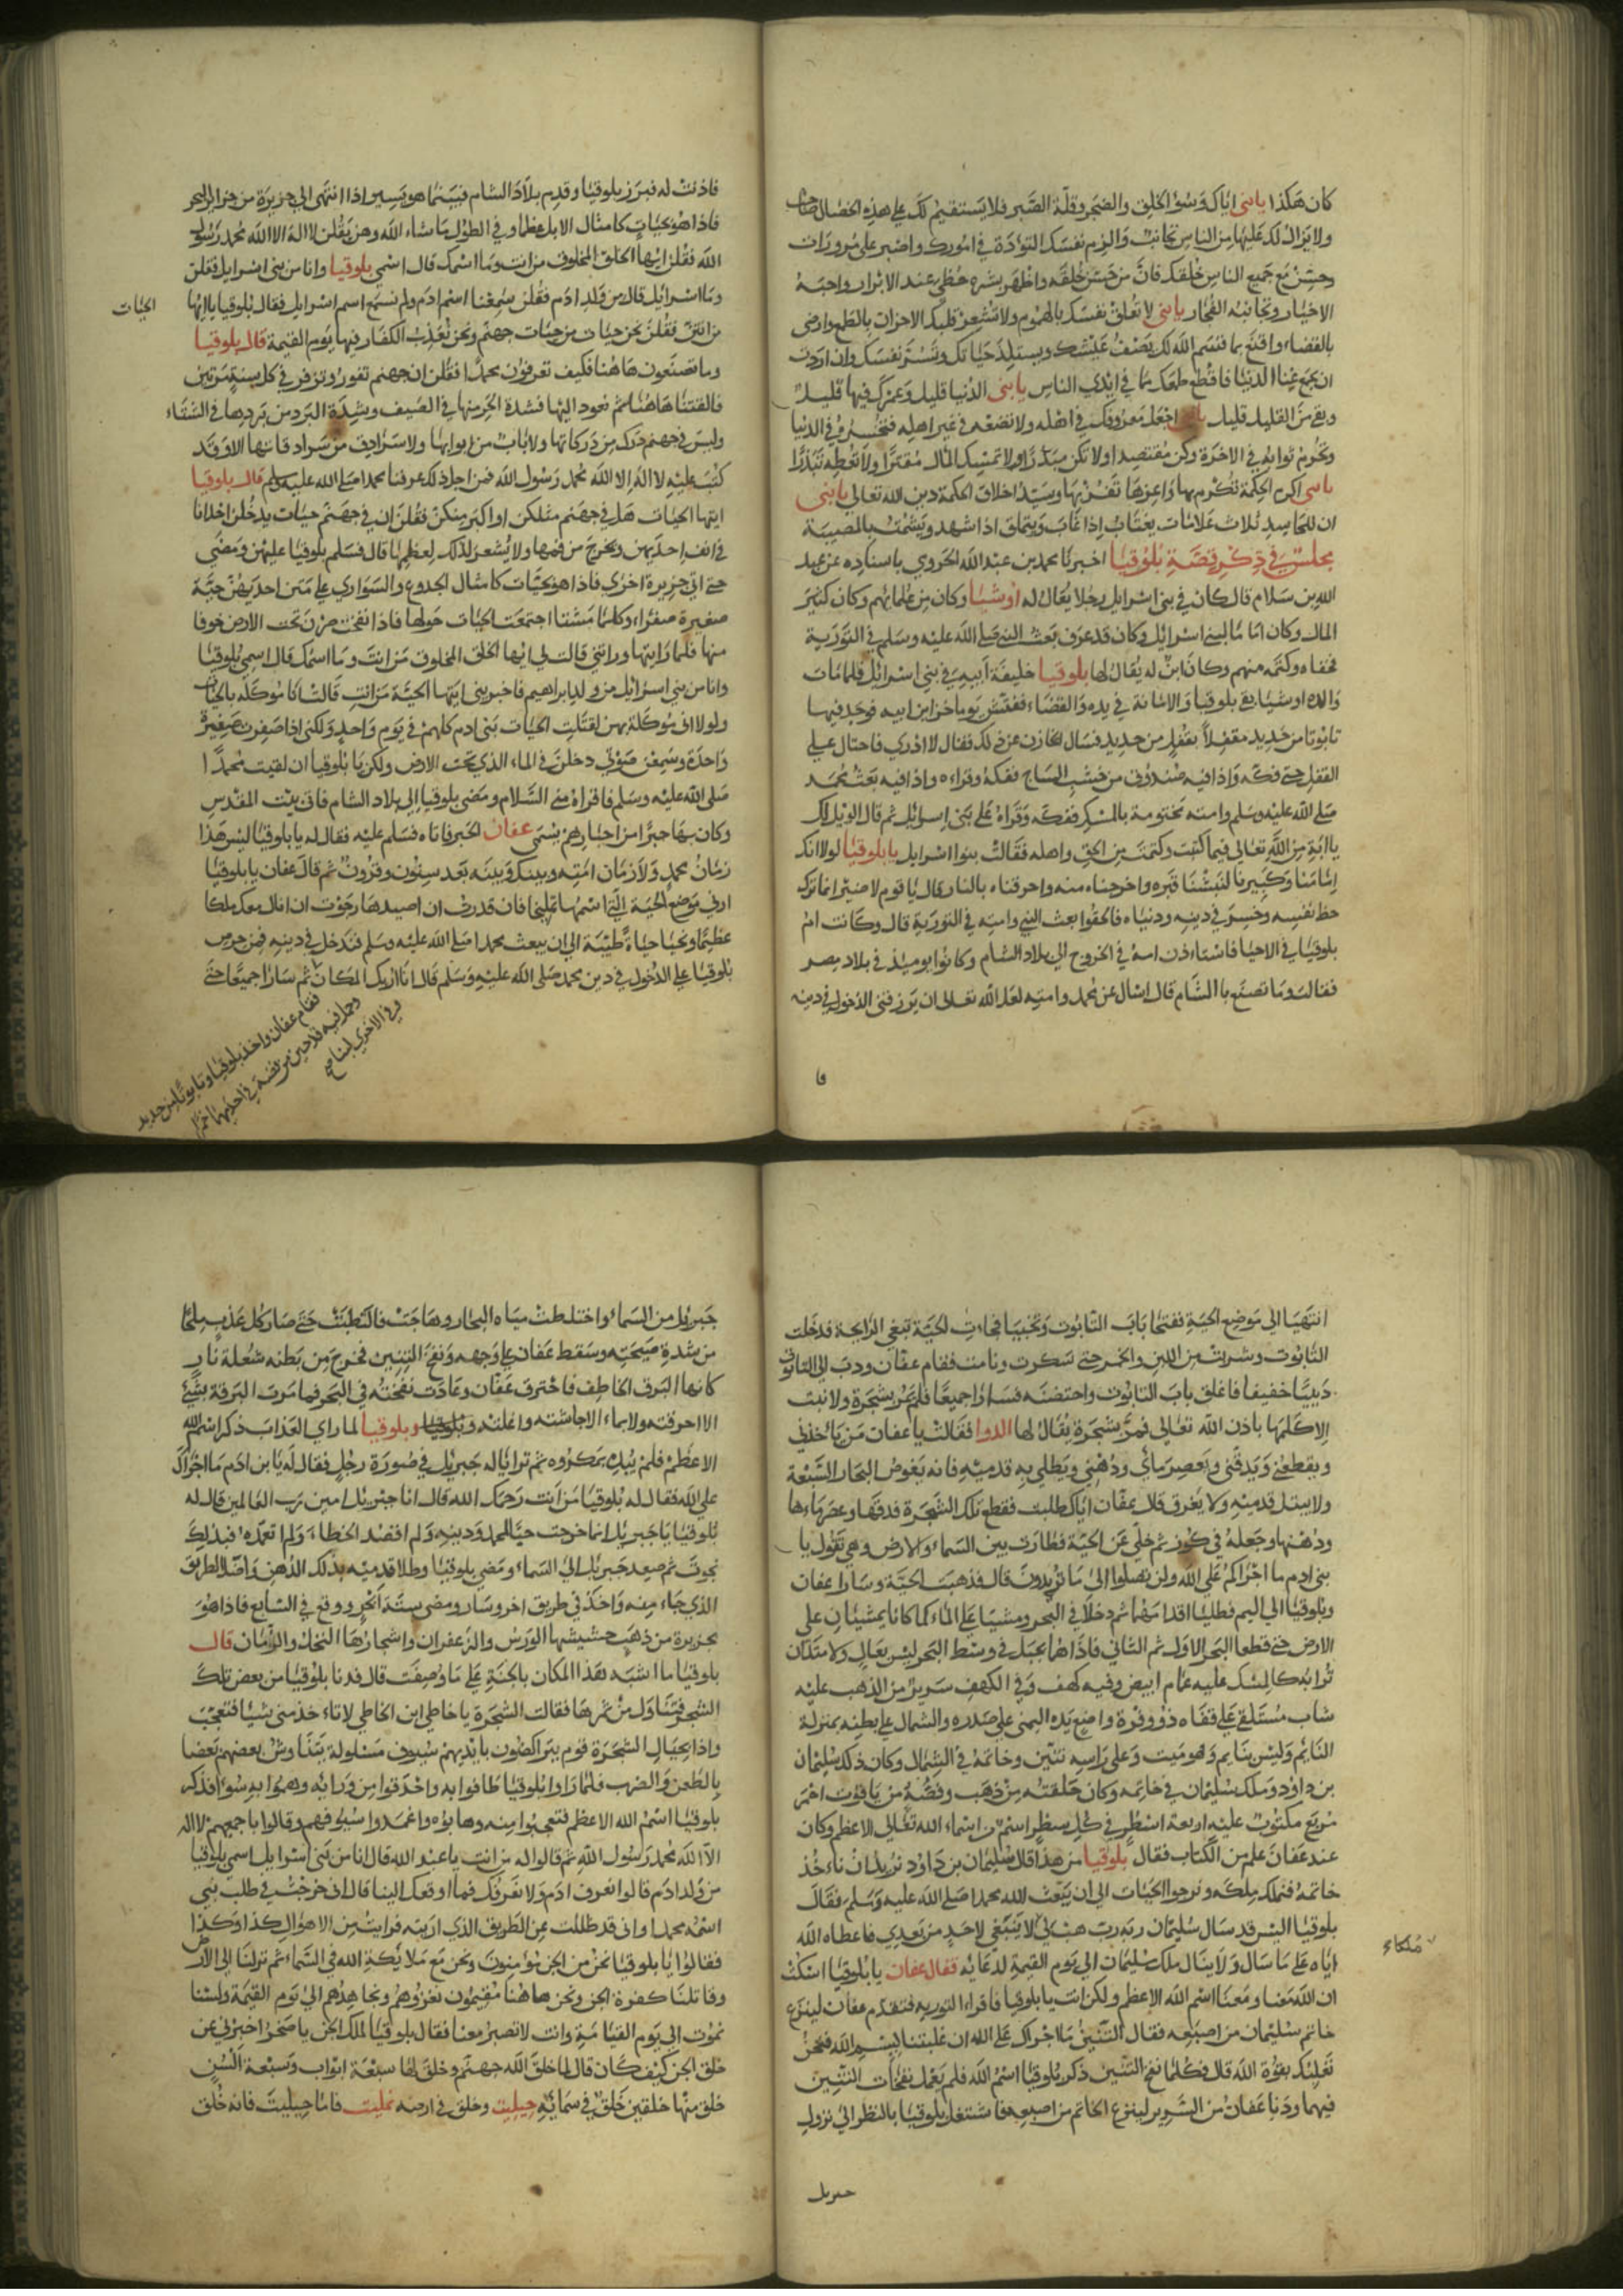 كان هكذا يابنى اياك وسؤ الخلق والضجر وقلة الصبر فلا يستقيم لك على هذه الخصال صاحب
ولا يزال لك عليها من الناس مجانب والزم نفسك التؤدة في امورك واصبر على مرورات
وحسن مع جميع الناس خلقك فان من حسن خلقه واظهر بشره حظى عند الابرار واحبه
الاخيار وتجانبه الفجار يابنى لا تعلق نفسك بالهموم ولا تشعر قلبك الاحزان بالطمع وارضى
بالقضاء واقنع بما قسم الله لك يصف عيشك ويستلذ حياتك وتستر نفسك وان اردت
ان يجمع غنا الدنيا فاقطع طمعك مما في ايدي الناس يابنى الدنيا قليل وعمرك فيها قليل
وبقى من القليل قليل اجعل معروفك في اهله ولا تضعه في غير اهله فتخسره في الدنيا
وتحرم ثوابه في الاخرة وكن مقتصدا ولا تكن مبذرا ولا تمسك المال مقترا ولا تعطه تبذرا
يابنى اكرم الحكمة تكرم بها واعزها تعز بها وسيد اخلاق الحكمة دين الله تعالى يابنى
ان للحاسد ثلاث علامات يغتاب اذا غاب ويتملق اذا شهد ويشمت بالمصيبة
مجلس في ذكر قصة بلوقيا اخبرنا محمد بن عبدالله الحروي باسناده عن عبد
الله بن سلام قال كان في بنى اسرايل رجلا يقال له اوشيا وكان من علمائهم وكان كثير
المال وكان اماما لبنى اسرائيل وكان قد عرف بعث النبى صلى الله عليه وسلم في التورية
فخفاه وكتمه منهم وكان ابن له يقال لها بلوقيا خليفة ابيه في بنى اسرائيل فلما مات
والده اوشيا بقى بلوقيا والامانة في يده والقضاء ففتش يوما خزاين ابيه فوجد فيها
تابوتا من حديد مقفلا بقفل من حديد فسال الخازن عن ذلك فقال لا ادري فاحتال على
القفل حتى فكه واذا فيه صندوق من خشب الساج ففكه وقراه واذا فيه بعث محمد
صلى الله عليه وسلم وامته مختومة بالمسك ففكه وقراه على بنى اسرائيل ثم قال الويل لك
يا ابة من الله تعالى فيما كتبت وكتمت من الحق واهله فقالت بنوا اسرايل يا بلوقيا لولا انك
امامنا وكبيرنا لنبشنا قبره واخرجناه منه واحرقناه بالنار قال يا قوم لا ضير انما ترك
حظ نفسه وخسر في دينه ودنياه فالحقوا بعث النبى وامته في التورية قال وكانت ام
بلوقيا في الاحيا فاستاءذن امه في الخروج الى بلاد الشام وكانوا يوميذ في بلاد مصر
فقالت وما تصنع باالشام قال اسال عن محمد وامته لعل الله تعالى ان يرزقنى الدخول في دينه
فا
فاذنت له فبرز بلوقيا وقدم بلاد الشام فبينما هو يسير اذا انتهى الى جزيرة من جزاير البحر
فاذا هو بحيات كامثال الابل عظما وفي الطول ما شاء الله وهن يقلن لا اله الا الله محمد رسول
الله فقلن ايها الخلق المخلوف من انت وما اسمك قال اسمى بلوقيا وانا من بنى اسرايل فقلن
وما اسرايل قال من ولد ادم فقلن سمعنا اسم ادم ولم نسمع اسم اسرايل فقال بلوقيا ياايها
الحيات
من انتن فقلن نحن حيات من حيات جهنم ونحن نعذب الكفار فيها يوم القيمة قال بلوقيا
وما تصنعون هاهنا فكيف تعرفون محمدا فقلن ان جهنم تفور وتزفر في كل سنة مرتين
فالقتنا هاهنا ثم نعود اليها فشدة الحر منها في الصيف وشدة البرد من بردها في الشتاء
وليس في جهنم درك من دركاتها ولا باب من ابوابها ولا سرادق من سرادقاتها الا وقد
كتب عليه لا اله الا الله محمد رسول الله فمن اجل ذلك عرفنا محمدا صلى الله عليه وسلم قال بلوقيا
ايتها الحيات هل في جهنم مثلكن او اكبر منكن فقلن ان في جهنم حيات يدخلن احدانا
في انف احديهن وتخرج من فمها ولا يشعر لذلك لعظمها قال فسلم بلوقيا عليهن ومضى
حتى اتى جزيرة اخرى فاذا هو بحيات كامثال الجدوع والسواري على متن احديهن حية
صغيرة صفراء وكلما مشتا اجتمعت الحيات حولها فاذا نفخت صرن تحت الارض خوفا
منها فلما راتها وراتنى قالت لي ايها الخلق المخلوق من انت وما اسمك قال اسمى بلوقيا
وانا من بنى اسرائيل من ولد ابراهيم فاخبرينى ايتها الحية من انت قالت انا موكلة بالحيات
ولولا انى موكلة بهن لقتلت الحيات بنى ادم كلهم في يوم واحد ولكنى اذا صفرت صفيرة
واحدة وسمعن صوتى دخلن في الماء الذي تحت الارض ولكن يا بلوقيا ان لقيت محمدا
صلى الله عليه وسلم فاقراه منى السلام ومضى بلوقيا الى بلاد الشام فاتى بيت المقدس
وكان بها حبرا من احبارهم يسمى عفان الحبر فاتاه فسلم عليه فقال له يا بلوقيا ليس هذا
زمان محمد ولا زمان امته وبينك وبينه بعد سنون وقرون ثم قال عفان يا بلوقيا
ارنى موضع الحية التى اسمها تمليخا فان قدرت ان اصيدها رجوت ان انال معك ملكا
عظيما ونحيا حياة طيبة الى ان يبعث محمدا صلى الله عليه وسلم فندخل في دينه فمن حرص
بلوقيا على الدخول في دين محمد صلى الله عليه وسلم قال انا اريك المكان ثم سارا جميعا حتى
فقام عفان واخذ بلوقيا وتابوتا من حديد
وجعل فيه قدحين من فضة في احديهما خمرا
وفي الاخرى لبنا صح
انتهيا الى موضع الحية ففتحا باب التابوت وتخبيا فجاءت الحية تبغى الرايحة فدخلت
التابوت وشربت من اللبن والخمر حتى سكرت ونامت فقام عفان ودب الى التابوت
دبيبا خفيفا فاغلق باب التابوت واحتضنه فسارا جميعا فلم يمر بشجرة ولا نبت
الا كلمها باذن الله تعالى فمر بشجرة يقال لها الدوا فقالت يا عفان من ياخذنى
ويقطعنى ويدقنى ويعصر مائى ودهنى ويطلى به قدميه فانه يغوض البحار السبعة
ولا يبتل قدميه ولا يغرق قال عفان اياك طلبت فقطع تلك الشجرة فدقها وعصر ماءها
ودهنها وجعله في كوز ثم خلى عن الحية فطارت بين السماء والارض وهى تقول يا
بنى ادم ما اجراكم على الله ولن تصلوا الى ما تريدون قال فذهبت الحية وسارا عفان
وبلوقيا الى اليم فطليا اقدامهما ثم دخلا في البحر ومشيا على الماء كما كانا يمشيان على
الارض حتى قطعا البحر الاول ثم الثانى فاذا هما بجبل في وسط البحر ليس بعال ولا متدان
ترابه كالمسك عليه غمام ابيض وفيه كهف وفي الكهف سرير من الذهب عليه
شاب مستلقى على قفاه ذو وفرة واضع يده اليمنى على صدره والشمال على بطنه بمنزلة
النائم وليس بنايم وهو ميت وعلى راسه تنين وخاتمه في الشمال وكان ذلك سليمان
بن داود وملك سليمان في خاتمه وكان حلقته من ذهب وفصه من ياقوت احمر
مربع مكتوب عليه اربعة اسطر في كل سطر اسم من اسماء الله تعالى الاعظم وكان
عند عفان علم من الكتاب فقال بلوقيا من هذا قال سليمان بن داود نريد ان ناءخذ
خاتمه فنملك ملكه ونرجوا الحيات الى ان يبعث الله محمدا صلى الله عليه وسلم فقال
بلوقيا اليس قد سال سليمان ربه رب هب لى لا ينبغى لاحد من بعدي فاعطاه الله
ملكاء
اياه على ما سال ولا ينال ملك سليمان الى يوم القيمة لدعائه فقال عفان يا بلوقيا اسكت
ان الله معنا ومعنا اسم الله الاعظم ولكن انت يا بلوقيا فاقراء التورية فتقدم عفان لينزع
خاتم سليمان من اصبعه فقال التنين ما اجراك على الله ان غلبتنا ببسم الله فنحن
نغلبك بقوة الله قال فكلما نفخ التنين ذكر بلوقيا اسم الله فلم يعمل نفخات التنين
فيهما ودنا عفان من السرير لينزع الخاتم من اصبعه فاشتغل بلوقيا بالنظر الى نزول
جبريل
جبريل من السماء واختلطت مياه البحار وهاجت فالتطبت حتى صار كل عذب ملحا
من شدة صيحته وسقط عفان على وجهه ونفخ التنين فخرج من بطنه شعلة نار
كانها البرق الخاطف فاحترق عفان وعادت نفخته في البحر فما مرت البرقة بشيء
الا احرقته ولا بماء الا جاشته واغلته وبلوقيا لما راي العذاب ذكر اسم الله
الاعظم فلم يبده بمكروه ثم تراياله جبريل في صورة رجل فقال له يا بن ادم ما اجراك
على الله فقال له بلوقيا من انت رحمك الله قال انا جبريل امين رب العالمين قال له
بلوقيا يا جبريل انما خرجت حبا لمحمد ودينه ولم اقصد الخطاء ولم اتعمده فبذلك
نجوت ثم صعد جبريل الى السماء ومضى بلوقيا وطلا قدميه بذلك الدهن واضل الطريق
الذي جاء منه واخذ في طريق اخر وسار ومضى ستة ابحر ووقع في السابع فاذا هو
بجزيرة من ذهب حشيشها الورس والزعفران واشجارها النخل والرمان قال
بلوقيا ما اشبه هذا المكان بالجنة على ما وصفت قال فدنا بلوقيا من بعض تلك
الشجر فتناول من ثمرها فقالت الشجرة يا خاطى ابن الخاطى لا تاءخذ منى شيئا فتعجب
واذا بحيال الشجرة قوم يتراكضون بايديهم سيوف مسلولة يتناوش بعضهم بعضا
بالطعن والضرب فلما راوا بلوقيا طافوا به واحدقوا من ورائه وهموا به سوءا فذكر
بلوقيا اسم الله الاعظم فتعجبوا منه وهابوه واغمدوا سيوفهم وقالوا باجمعهم لا اله
الا الله محمد رسول الله ثم قالوا له من انت يا عبد الله قال انا من بنى اسرايل اسمى بلوقيا
من ولد ادم قالوا نعرف ادم ولا نعرفك فما اوقعك الينا قال انى خرجت في طلب نبى
اسمه محمدا وانى قد ظللت عن الطريق الذي اردته فرايت من الاهوال كذا وكذا
فقالوا يا بلوقيا نحن من الجن مؤمنون ونحن مع ملايكة الله في السماء ثم نزلنا الى الارض
وقاتلنا كفرة الجن ونحن هاهنا مقيمون نغزوهم ونجاهدهم الى يوم القيمة ولسنا
نموت الى يوم القيامة وانت لا تصبر معنا فقال بلوقيا لملك الجن يا صخر اخبرنى عن
خلق الجن كيف كان قال لما خلق الله جهنم وخلق لها سبعة ابواب وسبعة السن
خلق منها خلقين خلق في سمائه جبليت وخلق في ارضه تمليت فاما جبليت فانه خلق